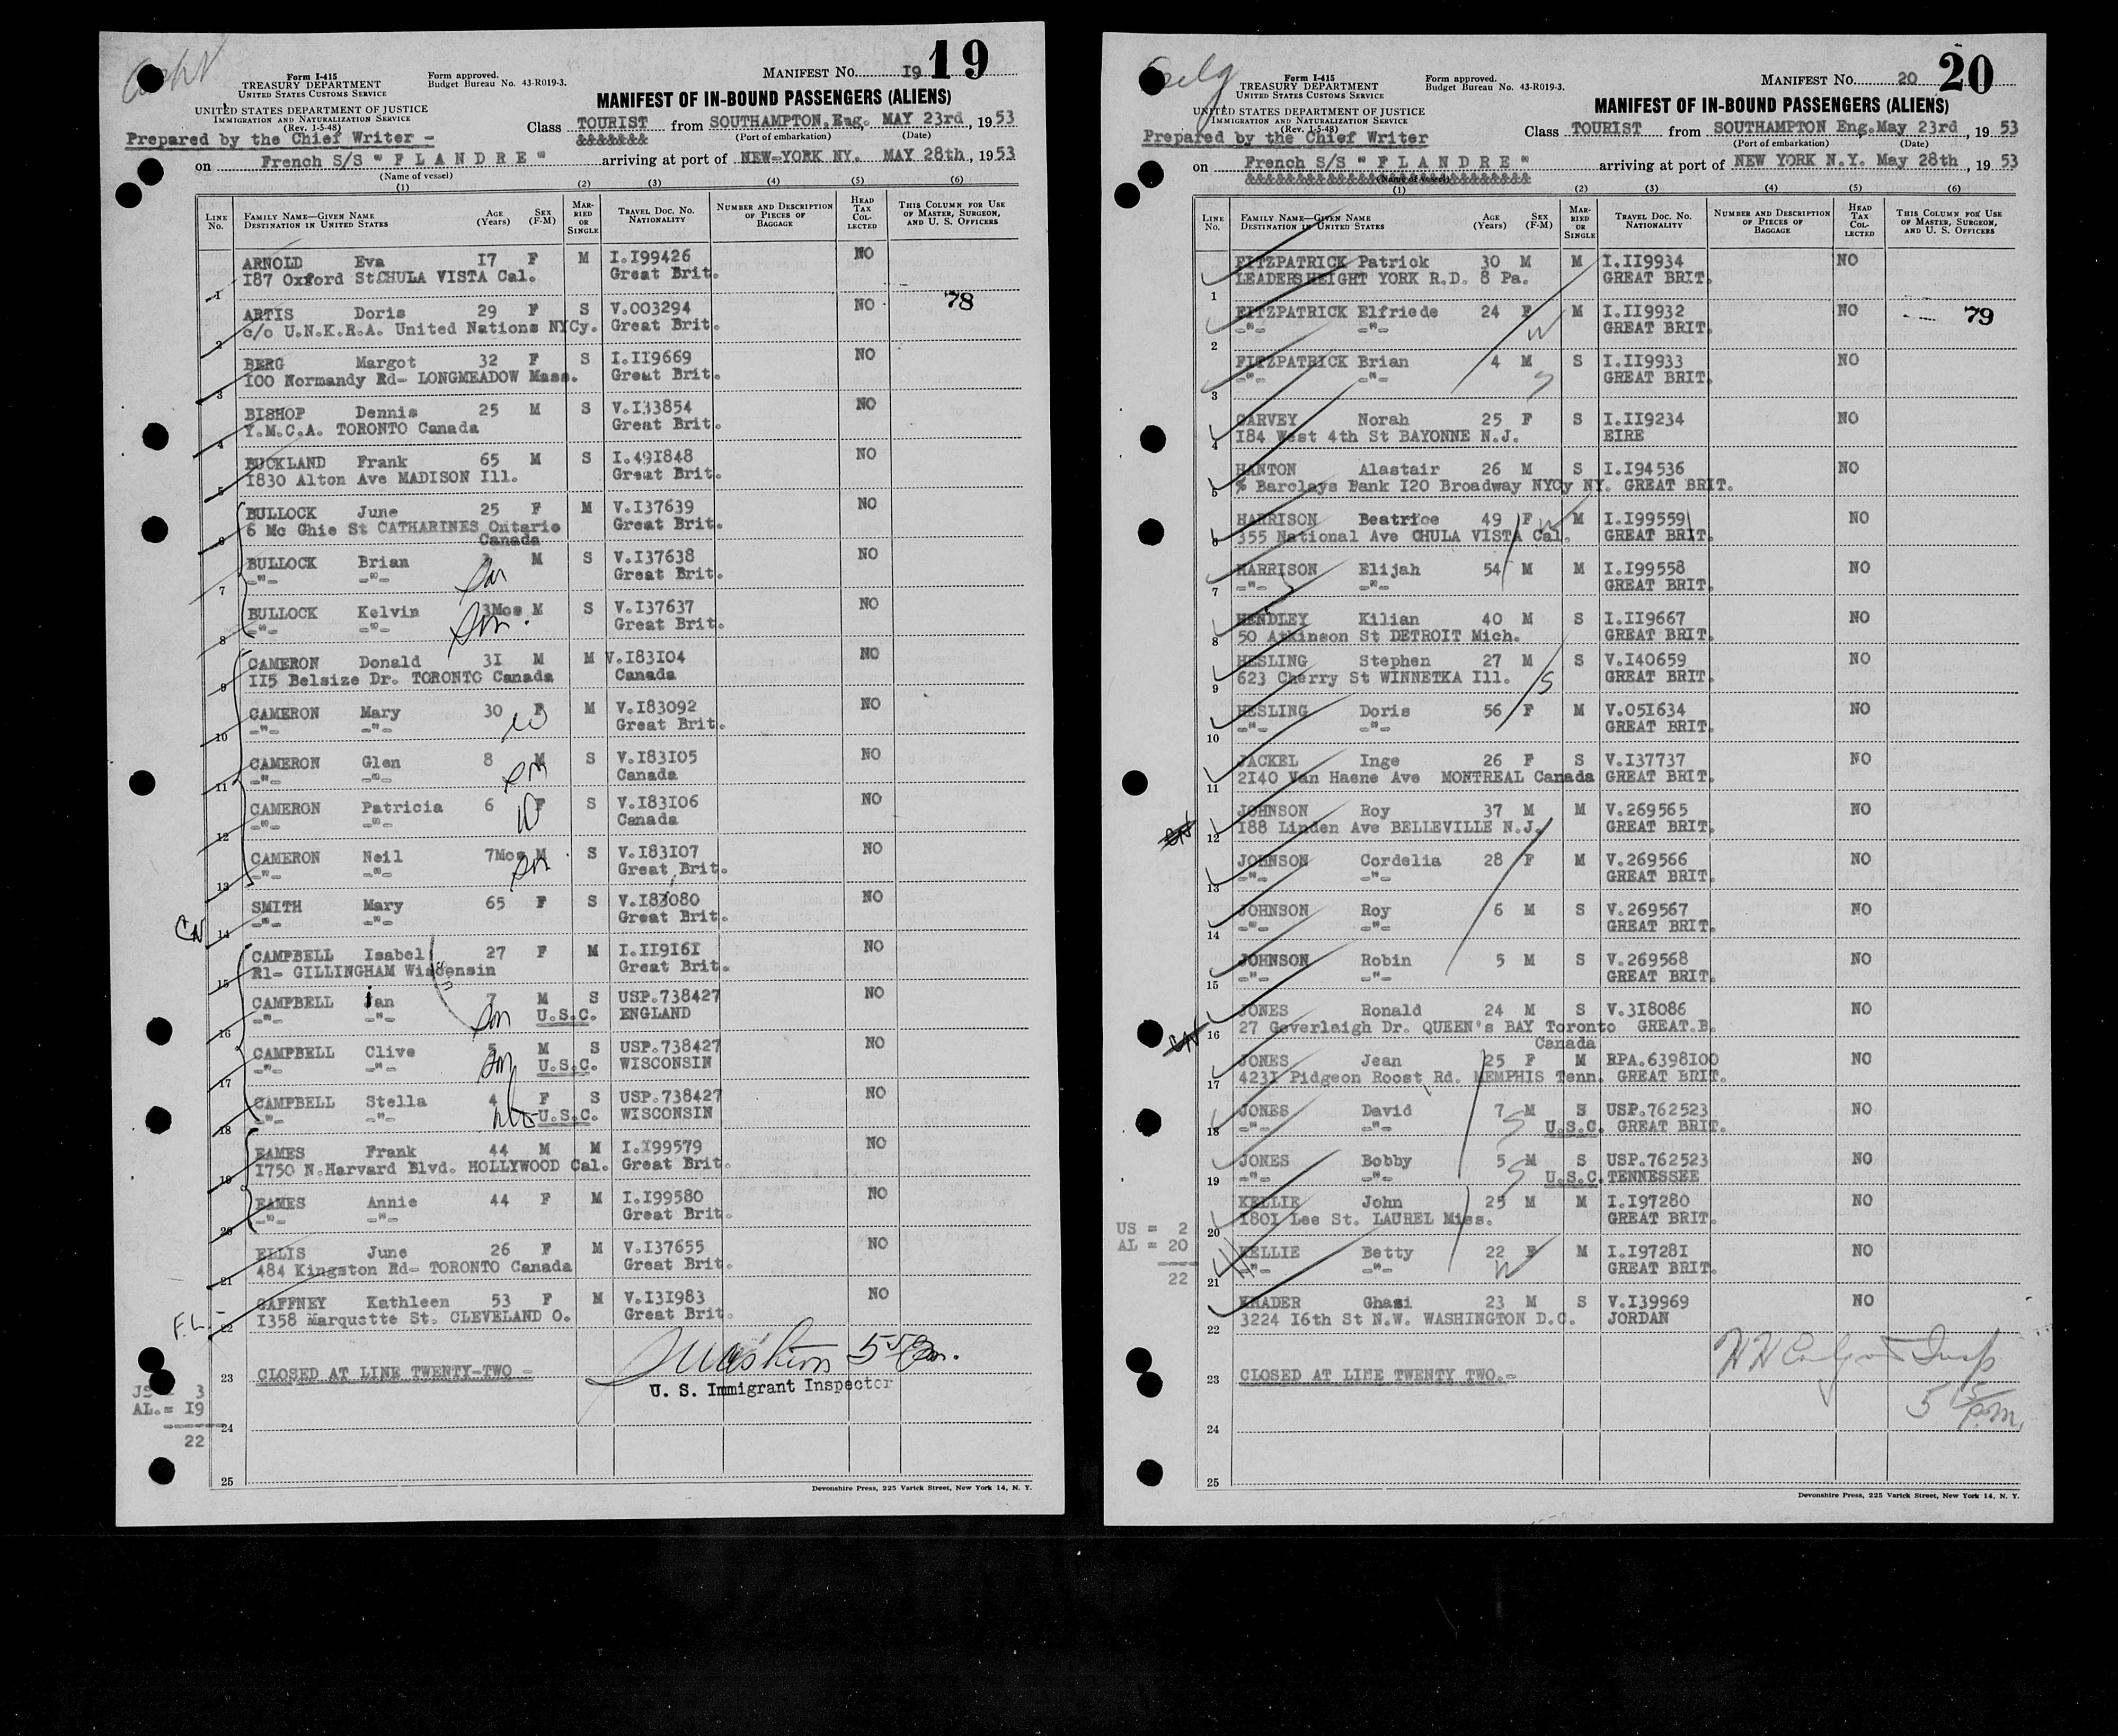 19
Form I-415
TREASURY DEPARTMENT
UNITED STATES CUSTOMS SERVICE
Form approved.
Budget Bureau No. 43-R019-3.
MANIFEST NO. I9
UNITED STATES DEPARTMENT OF JUSTICE
IMMIGRATION AND NATURALIZATION SERVICE
(Rev. 1-5-48)
MANIFEST OF IN-BOUND PASSENGERS (ALIENS)
Prepared by the Chief Writer -
Class TOURIST from SOUTHAMPTON, Eng. MAY 23rd, 1953
&&&&&&& (Port of embarkation) (Date)
on French S/S " F L A N D R E " arriving at port of NEW-YORK NY. MAY 28th, 1953
(Name of vessel)
(1) (2) (3) (4) (5) (6)
LINE No. FAMILY NAME—GIVEN NAME DESTINATION IN UNITED STATES AGE (Years) SEX (F-M) MARRIED OR SINGLE TRAVEL DOC. NO. NATIONALITY NUMBER AND DESCRIPTION OF PIECES OF BAGGAGE HEAD TAX COLLECTED THIS COLUMN FOR USE OF MASTER, SURGEON, AND U. S. OFFICERS
ARNOLD Eva I7 F M I.I99426 NO
1 I87 Oxford St CHULA VISTA Cal. Great Brit.
ARTIS Doris 29 F S V.003294 NO 78
2 c/o U.N.K.R.A. United Nations NYCy. Great Brit.
BERG Margot 32 F S I.II9669 NO
3 I00 Normandy Rd- LONGMEADOW Mass. Great Brit.
BISHOP Dennis 25 M S V.I33854 NO
4 Y.M.C.A. TORONTO Canada Great Brit.
BUCKLAND Frank 65 M S I.49I848 NO
5 I830 Alton Ave MADISON Ill. Great Brit.
BULLOCK June 25 F M V.I37639 NO
6 6 Mc Ghie St CATHARINES Ontario Great Brit.
Canada
BULLOCK Brian M S V.I37638 NO
7 -"- -"- Son Great Brit.
BULLOCK Kelvin 3Mos M S V.I37637 NO
8 -"- -"- Son Great Brit.
CAMERON Donald 3I M M V.I83I04 NO
9 II5 Belsize Dr. TORONTO Canada Canada
CAMERON Mary 30 F M V.I83092 NO
10 -"- -"- W Great Brit.
CAMERON Glen 8 M S V.I83I05 NO
11 -"- -"- Son Canada
CAMERON Patricia 6 F S V.I83I06 NO
12 -"- -"- D Canada
CAMERON Neil 7Mos M S V.I83I07 NO
13 -"- -"- Son Great Brit.
SMITH Mary 65 F S V.I83080 NO
14 -"- -"- Great Brit.
CAMPBELL Isabel 27 F M I.II9I6I NO
15 R1- GILLINGHAM Wisconsin Great Brit.
CAMPBELL Ian 7 M S USP.738427 NO
16 -"- -"- Son U.S.C. ENGLAND
CAMPBELL Clive 5 M S USP.738427 NO
17 -"- -"- Son U.S.C. WISCONSIN
CAMPBELL Stella 4 F S USP.738427 NO
18 -"- -"- U.S.C. WISCONSIN
EAMES Frank 44 M M I.I99579 NO
19 I750 N.Harvard Blvd. HOLLYWOOD Cal. Great Brit.
EAMES Annie 44 F M I.I99580 NO
20 -"- -"- Great Brit.
ELLIS June 26 F M V.I37655 NO
21 484 Kingston Rd- TORONTO Canada Great Brit.
GAFFNEY Kathleen 53 F M V.I3I983 NO
22 I358 Marquette St. CLEVELAND O. Great Brit.
23 CLOSED AT LINE TWENTY-TWO -
U. S. Immigrant Inspector
US= 3
AL.= I9
22
24
25
Devonshire Press, 225 Varick Street, New York 14, N. Y.
20
Form I-415
TREASURY DEPARTMENT
UNITED STATES CUSTOMS SERVICE
Form approved.
Budget Bureau No. 43-R019-3.
MANIFEST NO. 20
UNITED STATES DEPARTMENT OF JUSTICE
IMMIGRATION AND NATURALIZATION SERVICE
(Rev. 1-5-48)
MANIFEST OF IN-BOUND PASSENGERS (ALIENS)
Prepared by the Chief Writer
Class TOURIST from SOUTHAMPTON Eng. May 23rd, 1953
(Port of embarkation) (Date)
on French S/S " F L A N D R E " arriving at port of NEW YORK N.Y. May 28th, 1953
(Name of vessel)
(1) (2) (3) (4) (5) (6)
LINE No. FAMILY NAME—GIVEN NAME DESTINATION IN UNITED STATES AGE (Years) SEX (F-M) MARRIED OR SINGLE TRAVEL DOC. NO. NATIONALITY NUMBER AND DESCRIPTION OF PIECES OF BAGGAGE HEAD TAX COLLECTED THIS COLUMN FOR USE OF MASTER, SURGEON, AND U. S. OFFICERS
FITZPATRICK Patrick 30 M M I.II9934 NO
1 LEADERSHEIGHT YORK R.D. 8 Pa. GREAT BRIT.
FITZPATRICK Elfriede 24 F M I.II9932 NO 79
2 -"- -"- W GREAT BRIT.
FITZPATRICK Brian 4 M S I.II9933 NO
3 -"- -"- S GREAT BRIT.
GARVEY Norah 25 F S I.II9234 NO
4 I84 West 4th St BAYONNE N.J. EIRE
HANTON Alastair 26 M S I.I94536 NO
5 % Barclays Bank I20 Broadway NYCy NY. GREAT BRIT.
HARRISON Beatrice 49 F W M I.I99559 NO
6 355 National Ave CHULA VISTA Cal. GREAT BRIT.
HARRISON Elijah 54 M M I.I99558 NO
7 -"- -"- GREAT BRIT.
HENDLEY Kilian 40 M S I.II9667 NO
8 50 Atkinson St DETROIT Mich. GREAT BRIT.
HESLING Stephen 27 M S V.I40659 NO
9 623 Cherry St WINNETKA Ill. S GREAT BRIT.
HESLING Doris 56 F M V.05I634 NO
10 -"- -"- GREAT BRIT.
JACKEL Inge 26 F S V.I37737 NO
11 2I40 Van Haene Ave MONTREAL Canada GREAT BRIT.
JOHNSON Roy 37 M M V.269565 NO
12 I88 Linden Ave BELLEVILLE N.J. GREAT BRIT.
JOHNSON Cordelia 28 F M V.269566 NO
13 -"- -"- GREAT BRIT.
JOHNSON Roy 6 M S V.269567 NO
14 -"- -"- GREAT BRIT.
JOHNSON Robin 5 M S V.269568 NO
15 -"- -"- GREAT BRIT.
JONES Ronald 24 M S V.3I8086 NO
16 27 Goverlaigh Dr. QUEEN's BAY Toronto GREAT.B.
Canada
JONES Jean 25 F M RPA.6398I00 NO
17 423I Pidgeon Roost Rd. MEMPHIS Tenn. GREAT BRIT.
JONES David 7 M S USP.762523 NO
18 -"- -"- S U.S.C. GREAT BRIT.
JONES Bobby 5 M S USP.762523 NO
19 -"- -"- S U.S.C. TENNESSEE
KELLIE John 25 M M I.I97280 NO
20 I80I Lee St. LAUREL Miss. GREAT BRIT.
KELLIE Betty 22 F M I.I9728I NO
21 -"- -"- W GREAT BRIT.
KHADER Ghasi 23 M S V.I39969 NO
22 3224 I6th St N.W. WASHINGTON D.C. JORDAN
US = 2
AL = 20
22
23 CLOSED AT LINE TWENTY TWO.-
5 15 p.m.
24
25
Devonshire Press, 225 Varick Street, New York 14, N. Y.